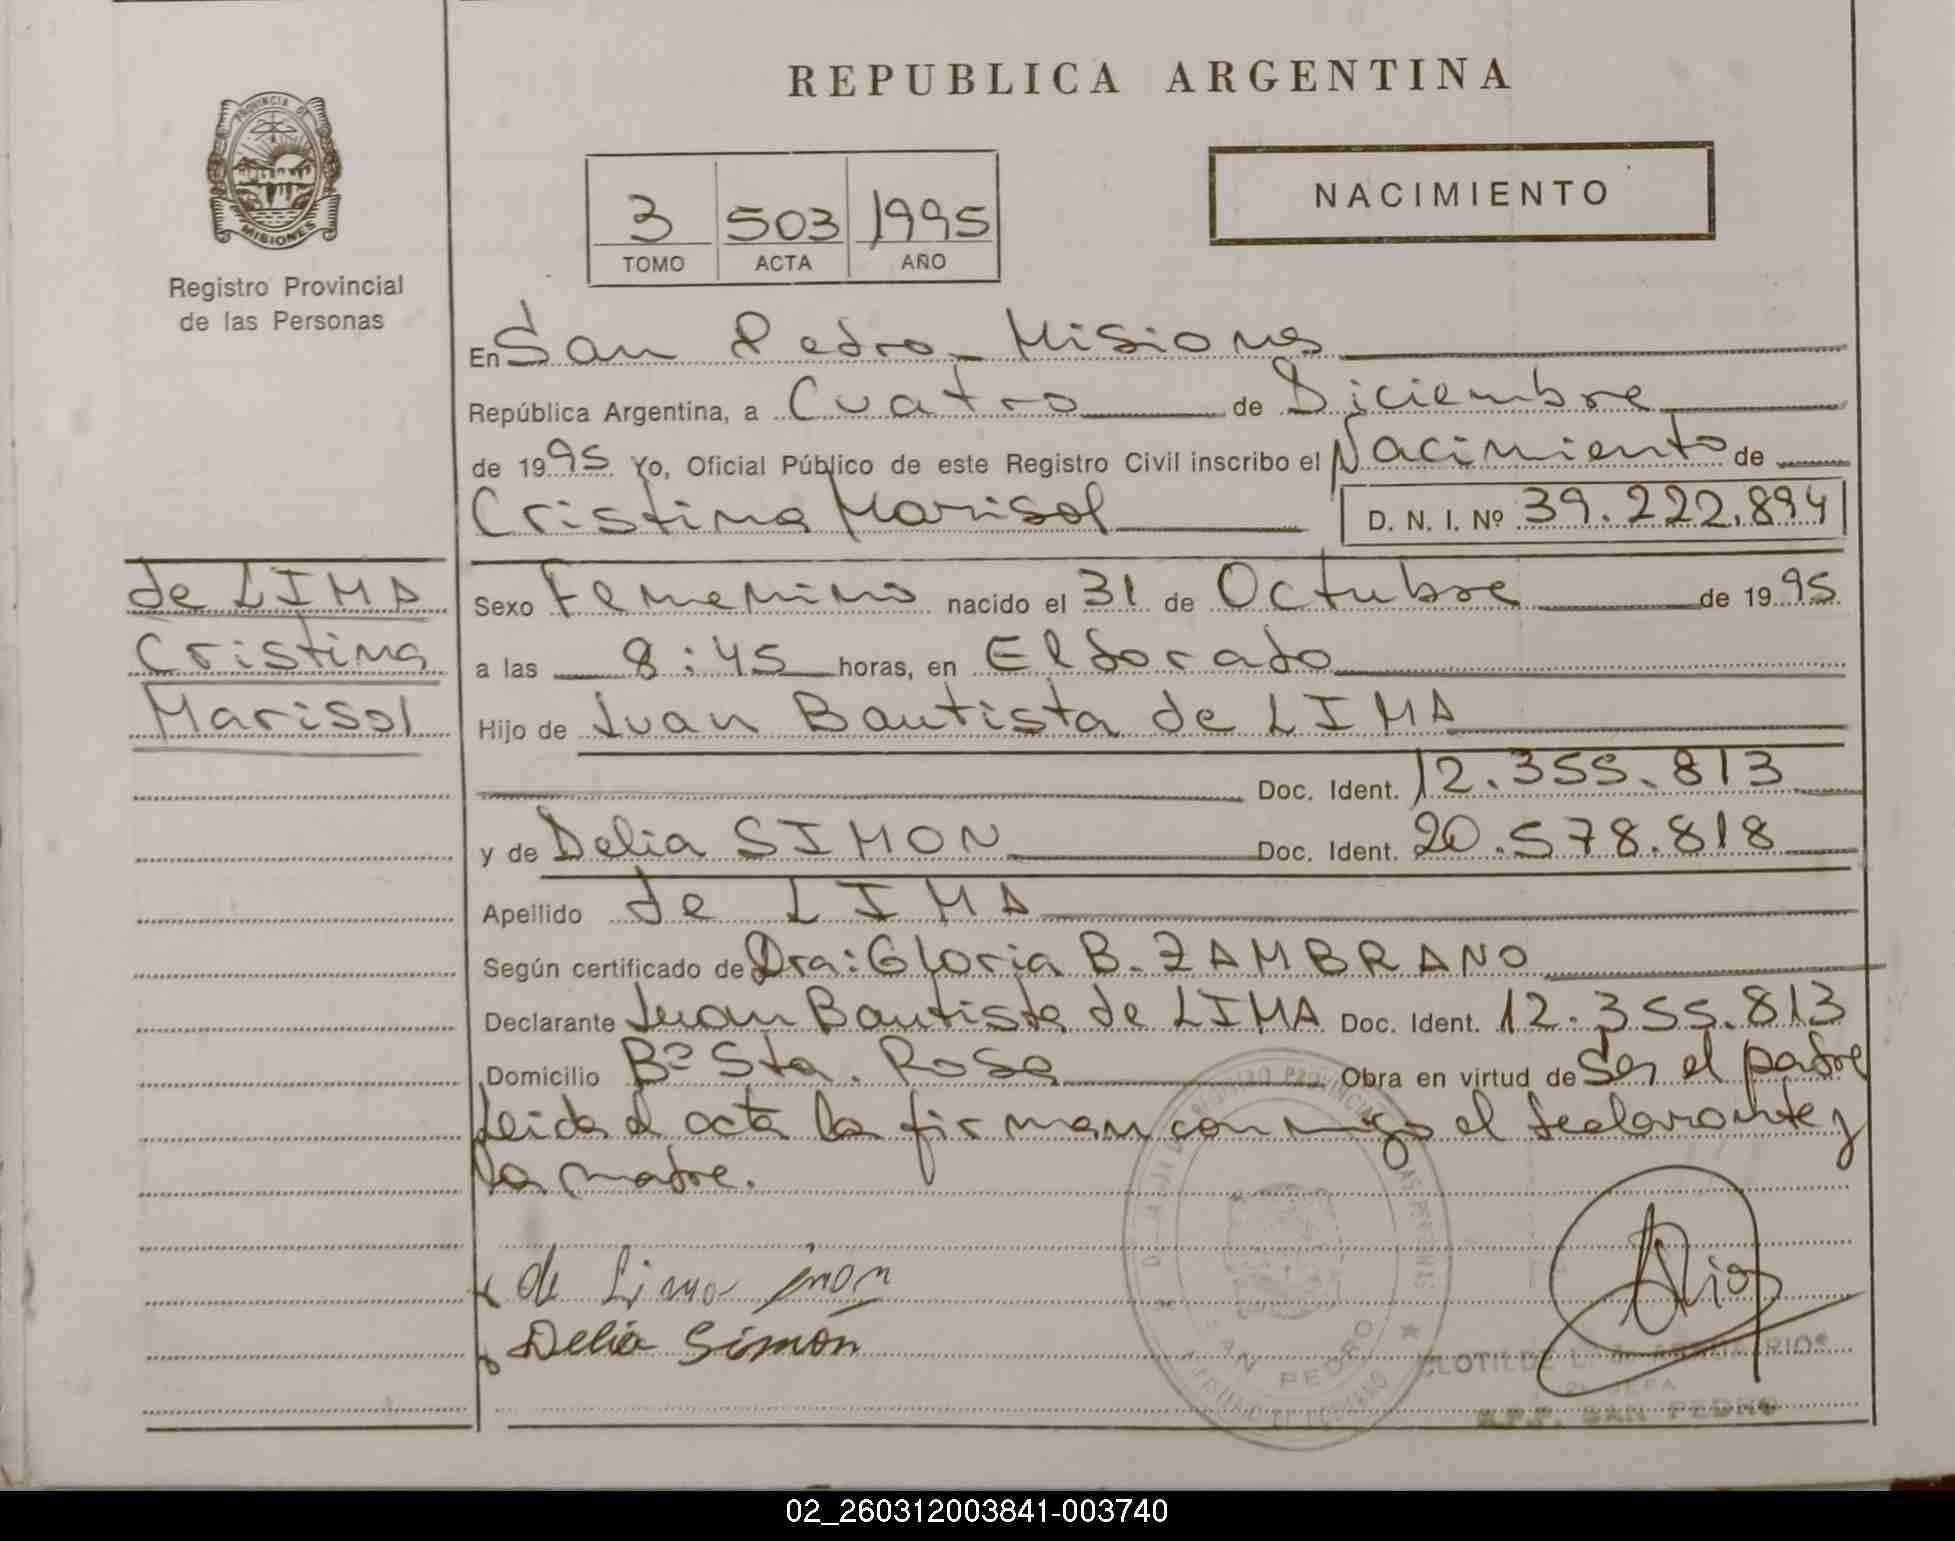 REPUBLICA ARGENTINA
PROVINCIA DE
MISIONES
Registro Provincial
de las Personas
3 503 1995
TOMO ACTA AÑO
NACIMIENTO
En San Pedro - Misiones
República Argentina, a Cuatro de Diciembre
de 1995 Yo, Oficial Público de este Registro Civil inscribo el Nacimiento de
Cristina Marisol D. N. I. Nº 39.222.894
de LIMA
Cristina
Marisol
Sexo Femenino nacido el 31 de Octubre de 1995
a las 8:45 horas, en Eldorado
Hijo de Juan Bautista de LIMA
Doc. Ident. 12.355.813
y de Delia SIMON Doc. Ident. 20.578.818
Apellido de LIMA
Según certificado de Dra: Gloria B. ZAMBRANO
Declarante Juan Bautista de LIMA Doc. Ident. 12.355.813
Domicilio Bº Sta. Rosa Obra en virtud de Ser el padre
leida el acta la firman conmigo el declarante y
la madre.
de Lima
Delia Simon
Rios
SAN PEDRO
CLOTILDE RIOS
JEFA
R.P.P. SAN PEDRO
02_260312003841-003740